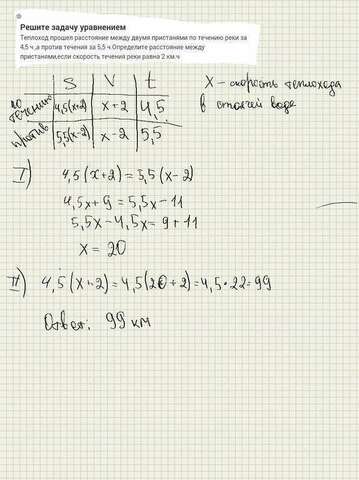 Решите задачу уравнением
Теплоход прошел расстояние между двумя пристанями по течению реки за
4,5 ч ,а против течения за 5,5 ч.Определите расстояние между
пристанями,если скорость течения реки равна 2 км.ч
S V t
по течению 4,5(x+2) x+2 4,5
против 5,5(x-2) x-2 5,5
X – скорость теплохода
в стоячей воде
I) 4,5(x+2)=5,5(x-2)
4,5x+9=5,5x-11
5,5x-4,5x=9+11
x=20
II) 4,5(x+2)=4,5(20+2)=4,5·22=99
Ответ: 99 км